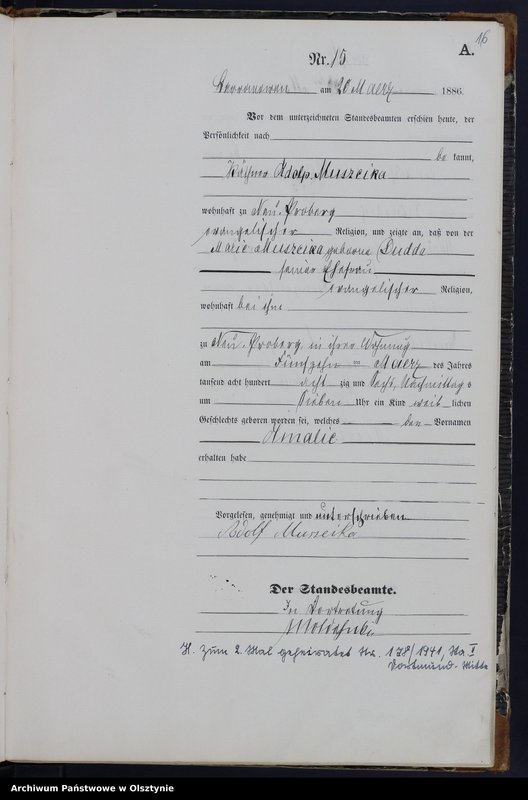 16
A.
Nr. 15
am 20 Maerz 1886.
Vor dem unterzeichneten Standesbeamten erschien heute, der
Persönlichkeit nach
be kannt,
Käthner Adolp. Muszeika
wohnhaft zu Neu-Proberg
evangelischer Religion, und zeigte an, daß von der
Marie Muszeika geborne Dudda
seiner Ehefrau
evangelischer Religion,
wohnhaft bei ihm
zu Neu-Proberg, in ihrer Wohnung
am Fünfzehn ten Maerz des Jahres
tausend acht hundert acht zig und Sechs, Nachmittags
um Sieben Uhr ein Kind weib lichen
Geschlechts geboren worden sei, welches den Vornamen
Amalie
erhalten habe
Vorgelesen, genehmigt und unterschrieben
Adolf Murseika
Der Standesbeamte.
In Vertretung
H. zum 2. Mal geheiratet Nr. 178/1941, Sta. I
Dortmund-Mitte
Archiwum Państwowe w Olsztynie